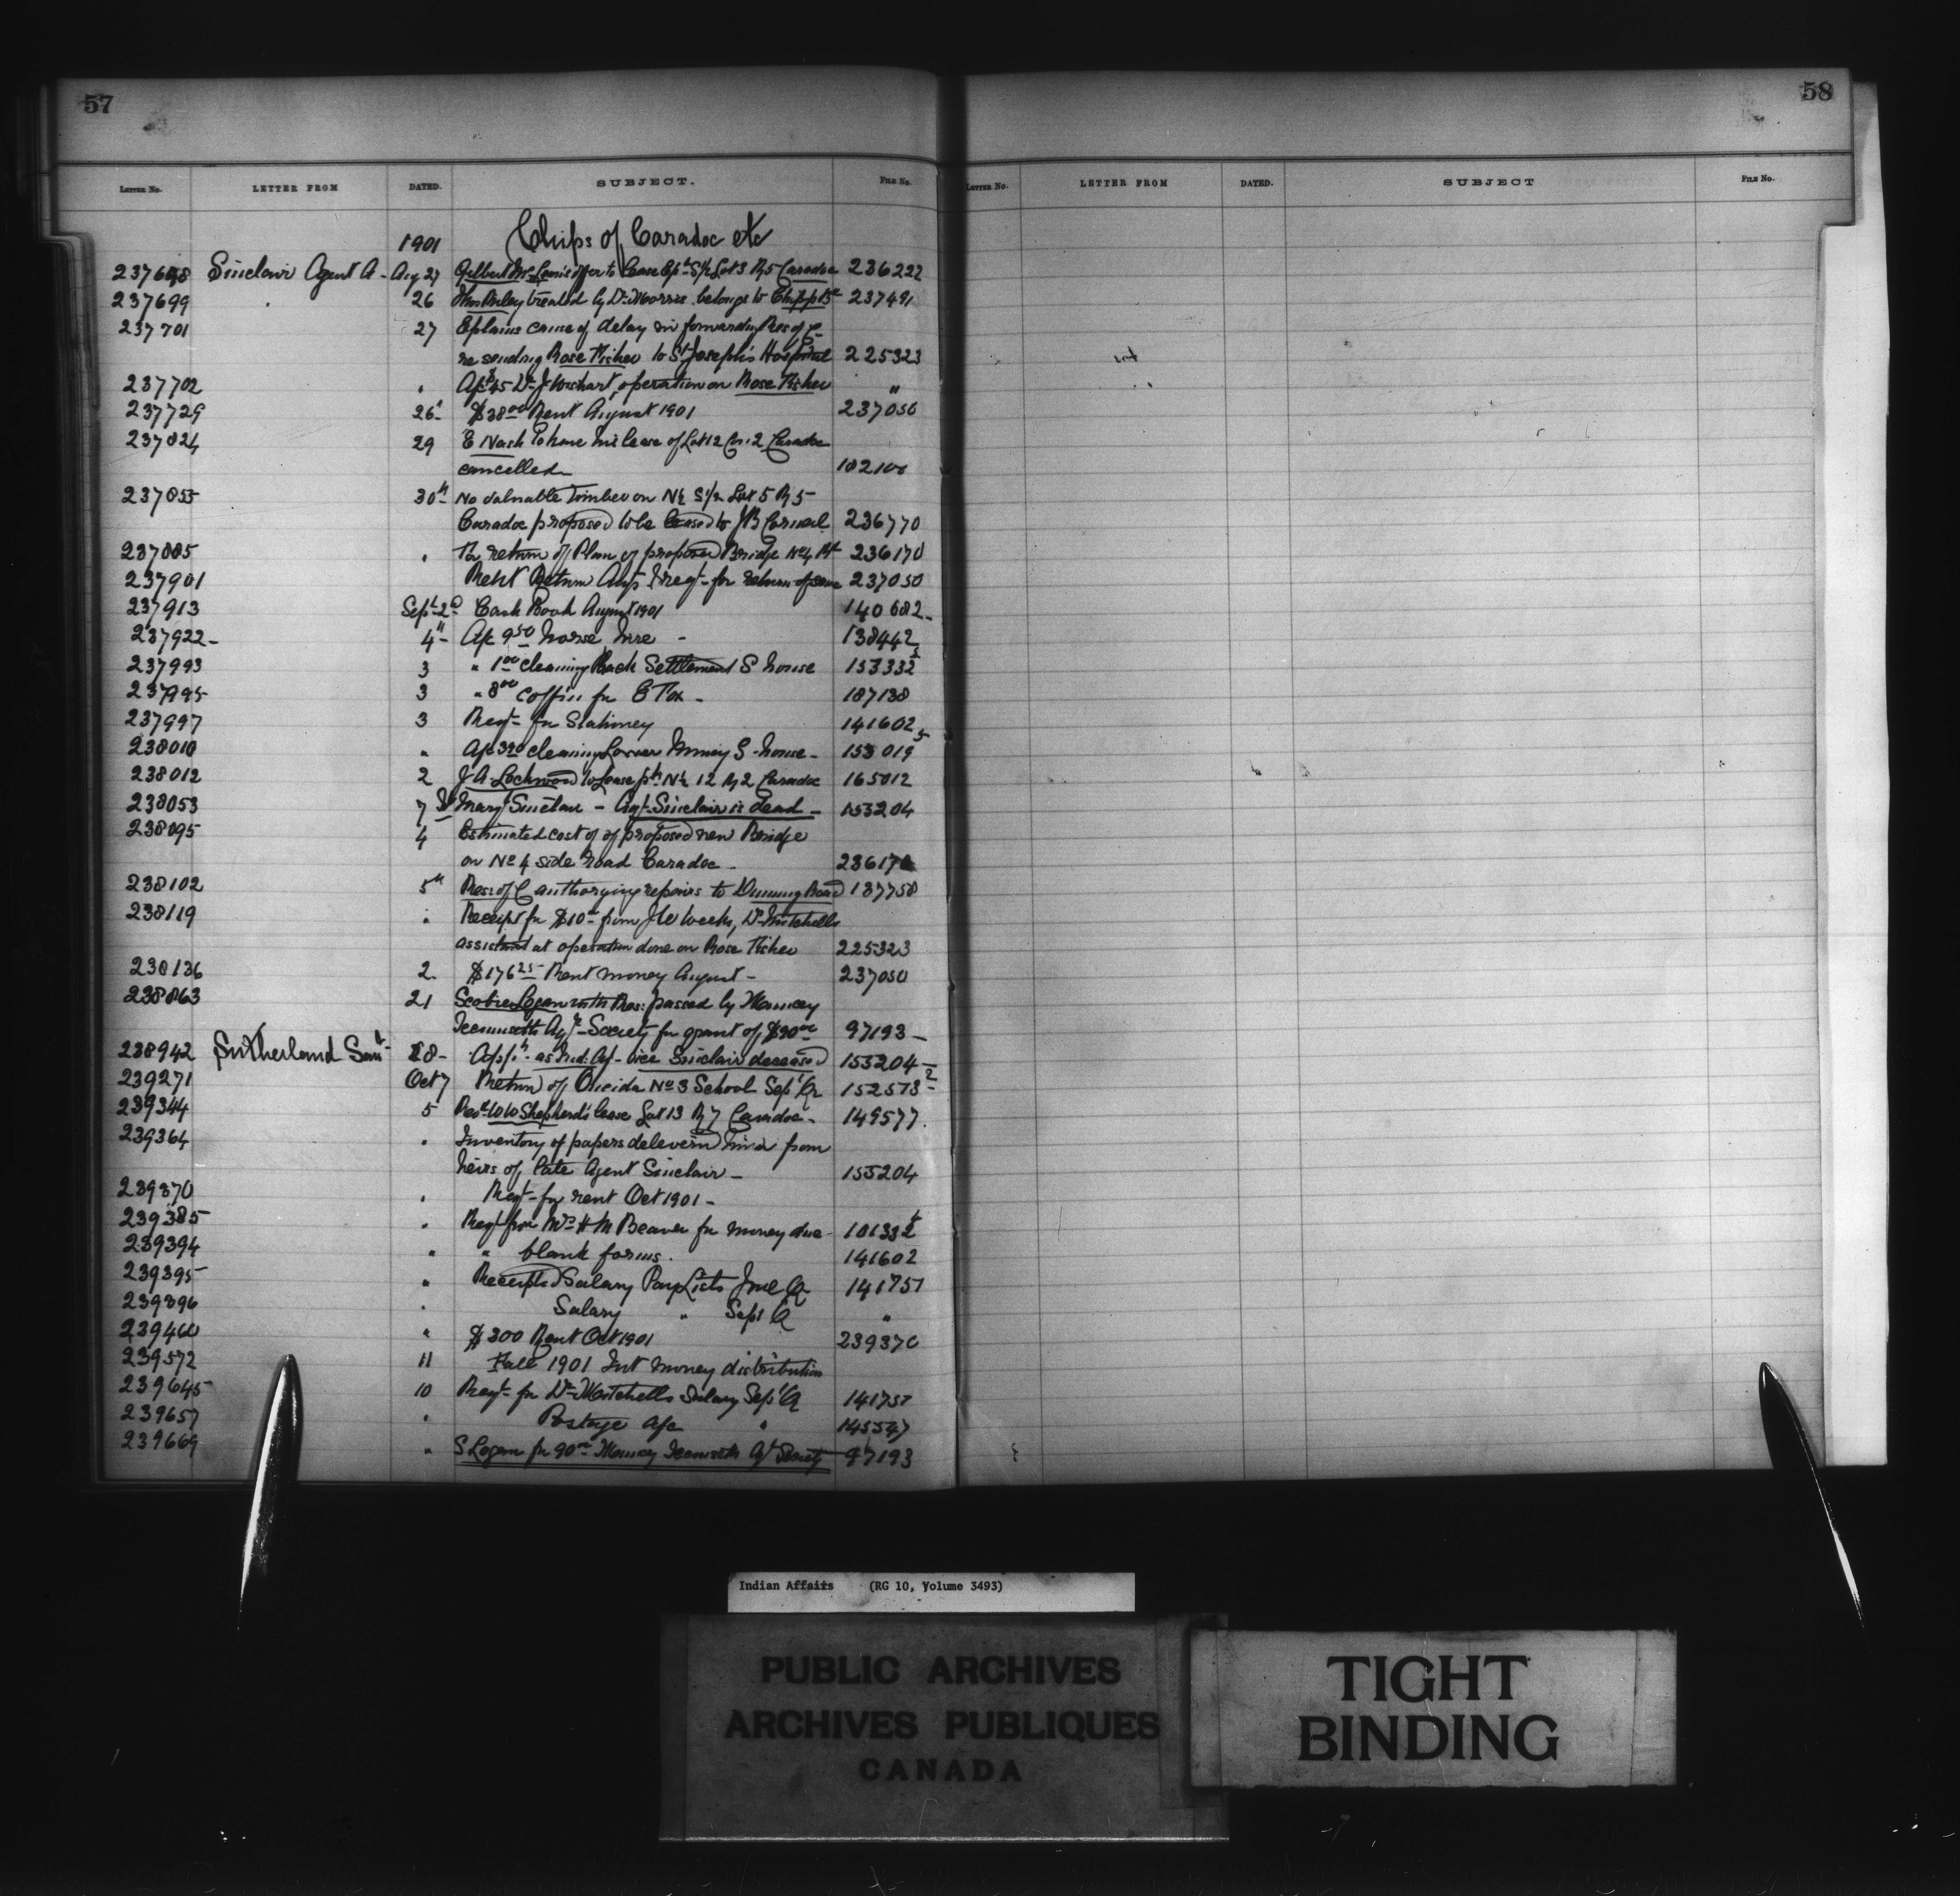 57
58
LETTER NO. LETTER FROM DATED. SUBJECT. FILE NO.
LETTER NO. LETTER FROM DATED. SUBJECT FILE NO.
1901 Chips of Caradoc etc
237698 Sinclair Agent A- Aug 27 Gilbert offer to lease S½ Lot 3 R 5 Caradoc 236222
237699 26 treated by Dr belongs to 237491
237701 27 Explains cause of delay in forwarding Res of C
re sending Rose Fisher to St Joseph's Hospital 225323
237702 " Dr J Wishart, operation on Rose Fisher "
237729 26 $38.00 Rent August 1901 237050
237824 29 E Nash to have his lease of Lot 12 Con 2 Caradoc
cancelled
237855 30th No valuable timber on N½ S½ Lot 5 R 5
Caradoc proposed to be leased to J B 236770
237885 " For return of Plan of proposed Bridge No 4 236170
237901 Rent Return Aug & reqt for return of same 237050
237913 Sept 2d Cash Book August 1901 140682
237922 4th A/c 9.50 horse hire 138442
237993 3 " 1.00 cleaning Back Settlement S house 153332
237995 3 " 8.00 coffin for E Fox 187138
237997 3 Reqt for Stationery 141602
238010 " A/c cleaning Lower Muncey S. house 153019
238012 2 J A Lockwood to lease pt N½ 12 R 2 Caradoc 165012
238053 7 Mary Sinclair - Agt. Sinclair is dead 153204
238095 4 Estimated cost of of proposed new Bridge
on No 4 side road Caradoc 236170
238102 5th Res: of C authorizing repairs to Road 137758
238119 " Receipt for $10 from J W Weeks, Dr Mitchells
assistant at operation done on Rose Fisher 225323
238136 2 $176.25 Rent money August 237050
238863 21 Scobie Logan with Res: passed by Muncey
Tecumseth Agr Society for grant of $90.00 97193
238942 Sutherland 28 App't as Ind: Agt vice Sinclair deceased 153204
239271 Oct 7 Return of Oneida No 3 School Sept Qr 152573
239344 5 Shepherd's lease Lot 13 R 7 Caradoc 149577
239364 " Inventory of papers from
heirs of late Agent Sinclair 153204
239370 " Reqt for rent Oct 1901
239385 " Reqt from H M Beaver for money due
239394 " " blank forms. 141602
239395 " Receipted Salary Pay Lists June Q 141751
239396 " Salary " Sept Q "
239460 " $300 Rent Oct 1901 239370
239572 11 Fall 1901 Int money distribution
239645 10 Reqt for Dr Mitchells Salary Sept Q 141751
239657 " Postage a/c " 145547
239669 " S Logan for 90.00 Muncey Tecumseth Ag Society 97193
Indian Affairs (RG 10, Volume 3493)
PUBLIC ARCHIVES
ARCHIVES PUBLIQUES
CANADA
TIGHT
BINDING